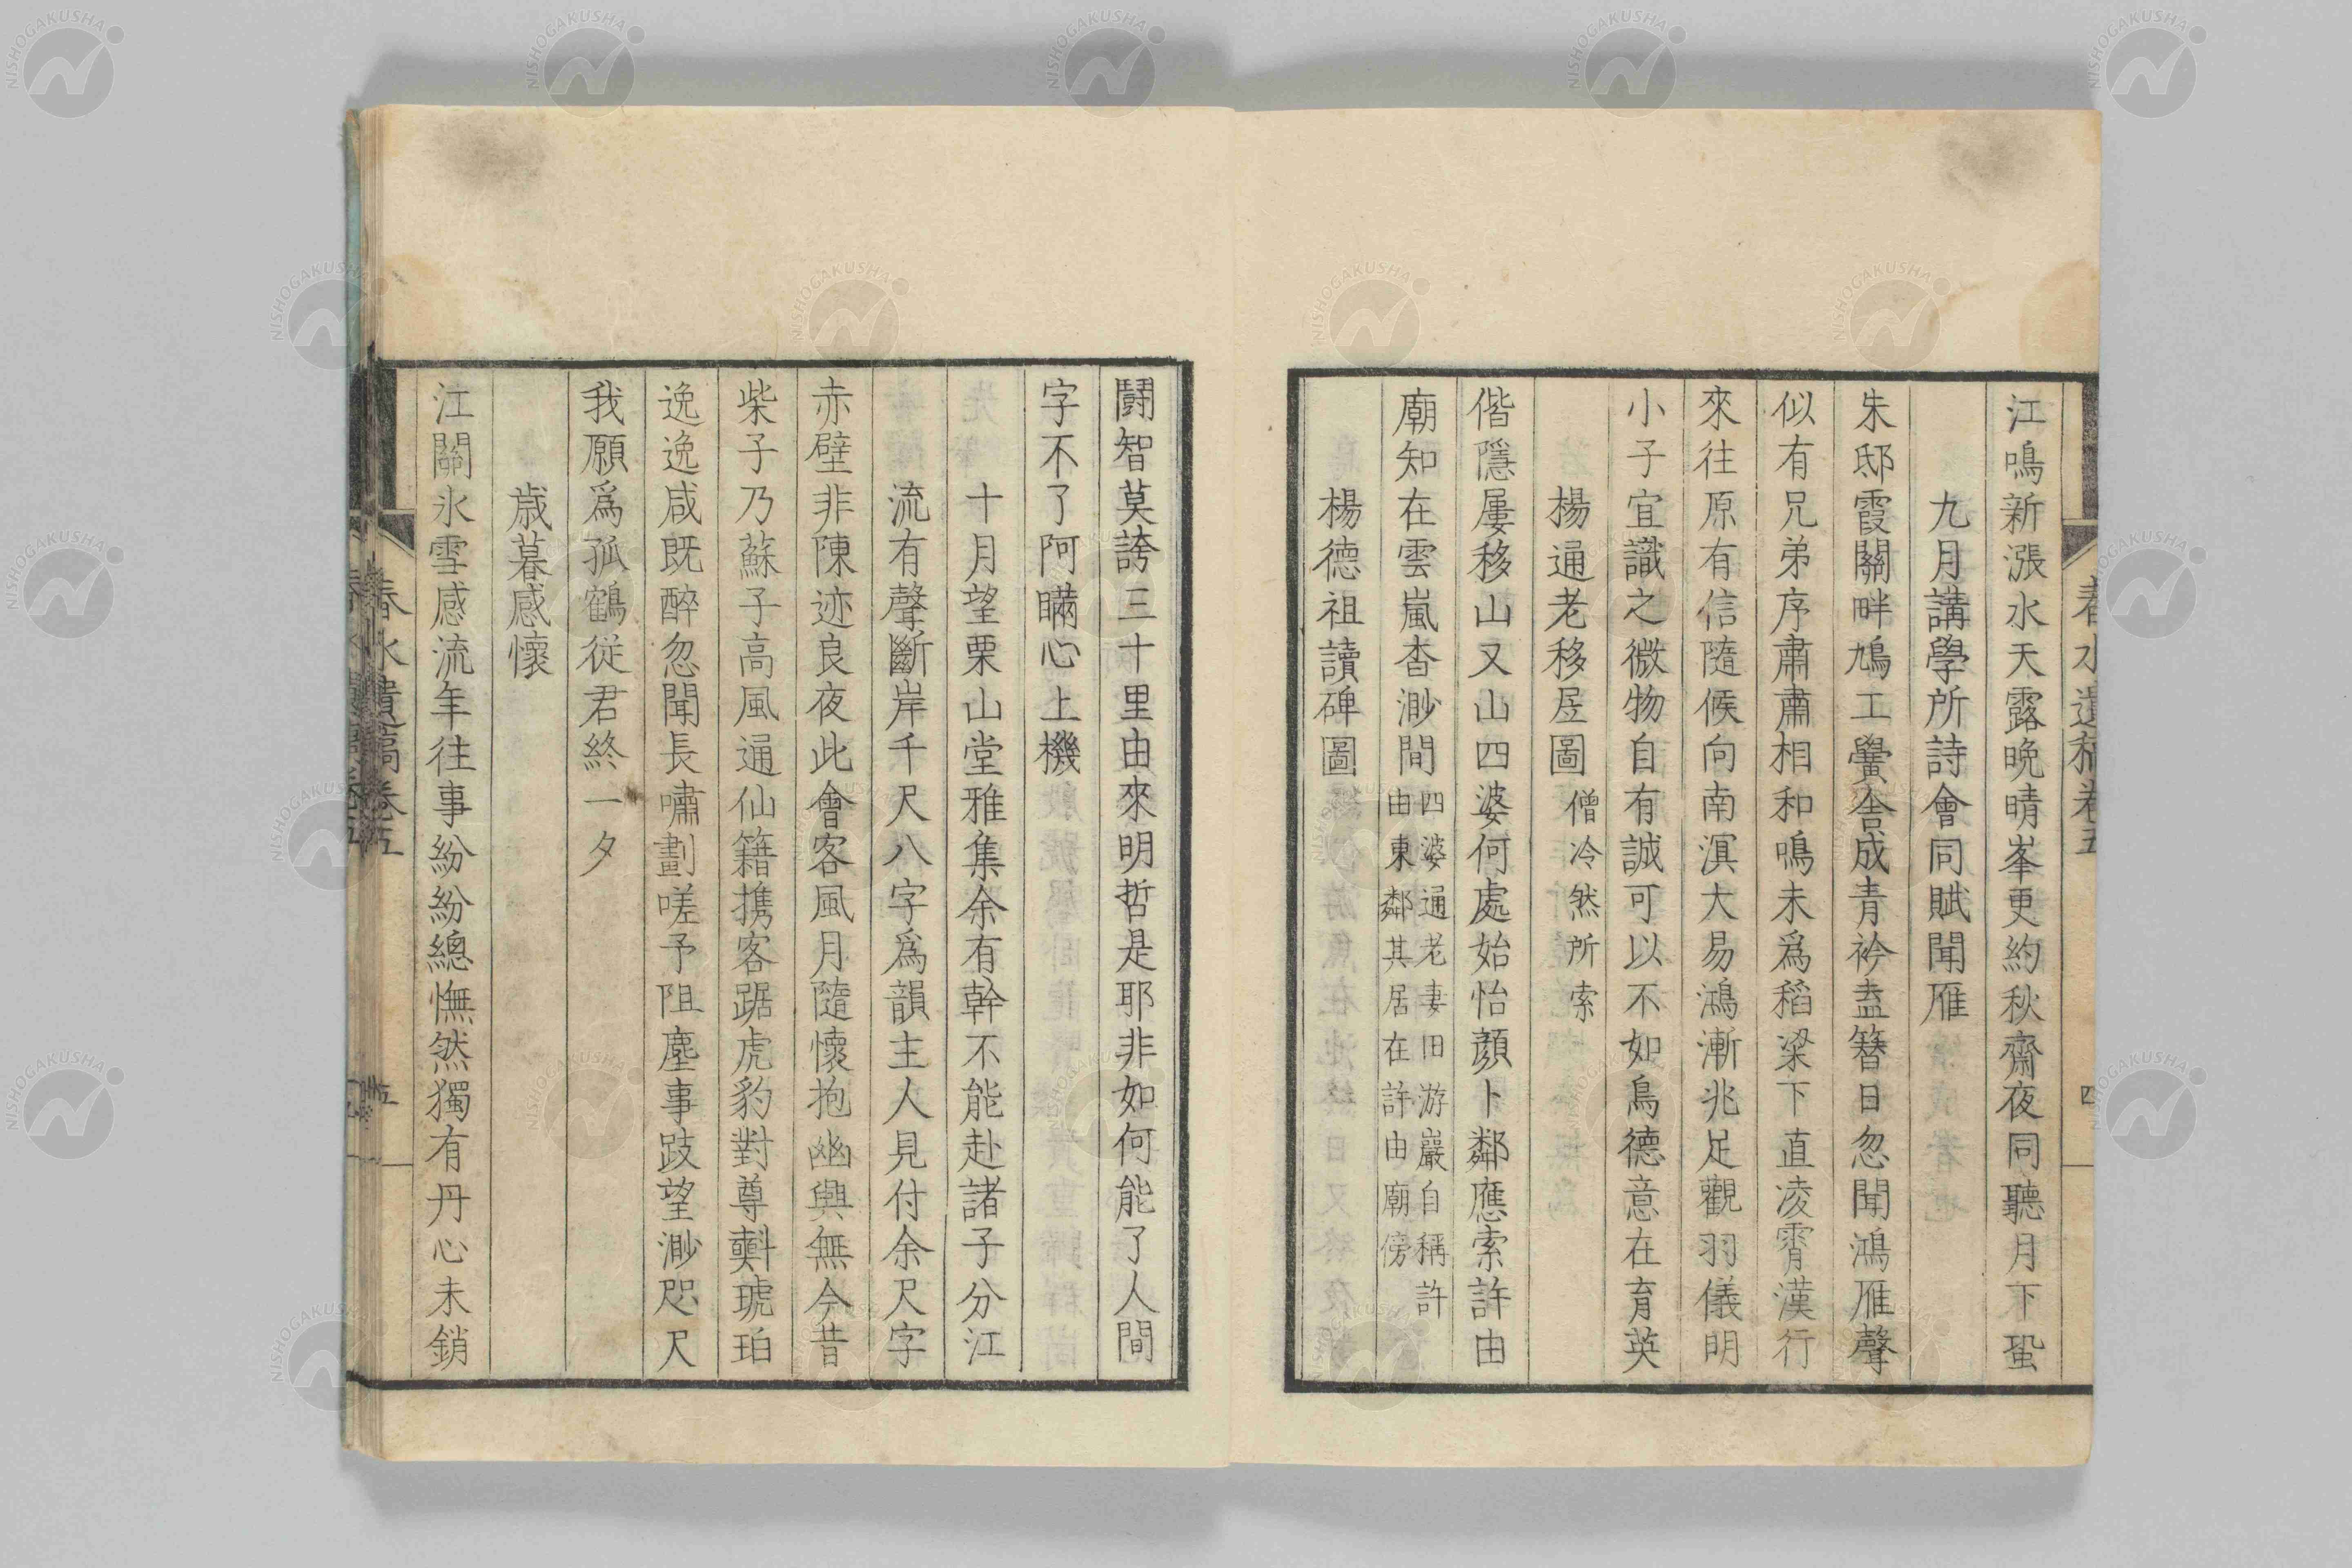 江鳴新漲水天露晩晴峯更約秋齋夜同聽月下蛩
九月講學所詩會同賦聞雁
朱邸霞關畔鳩工黌舍成青衿盍簪日忽聞鴻雁聲
似有兄弟序肅肅相和鳴未爲稻粱下直凌霄漢行
來往原有信隨候向南溟大易鴻漸兆足觀羽儀明
小子宜識之微物自有誠可以不如鳥德意在育英
楊通老移居圖 僧冷然所索
偕隱屢移山又山四婆何處始怡顏卜鄰應索許由
廟知在雲嵐杳渺間 四婆通老妻田游巖自稱許
由東鄰其居在許由廟傍
楊德祖讀碑圖
春水遺稿卷五
四
鬪智莫誇三十里由來明哲是耶非如何能了人間
字不了阿瞞心上機
十月望栗山堂雅集余有幹不能赴諸子分江
流有聲斷岸千尺八字爲韻主人見付余尺字
赤壁非陳迹良夜此會客風月隨懷抱幽興無今昔
柴子乃蘇子高風通仙籍携客踞虎豹對尊㪺琥珀
逸逸咸既醉忽聞長嘯劃嗟予阻塵事跂望渺咫尺
我願爲孤鶴從君終一夕
歳暮感懷
江關氷雪感流年往事紛紛總憮然獨有丹心未銷
春水遺稿卷五
五
NISHOGAKUSHA